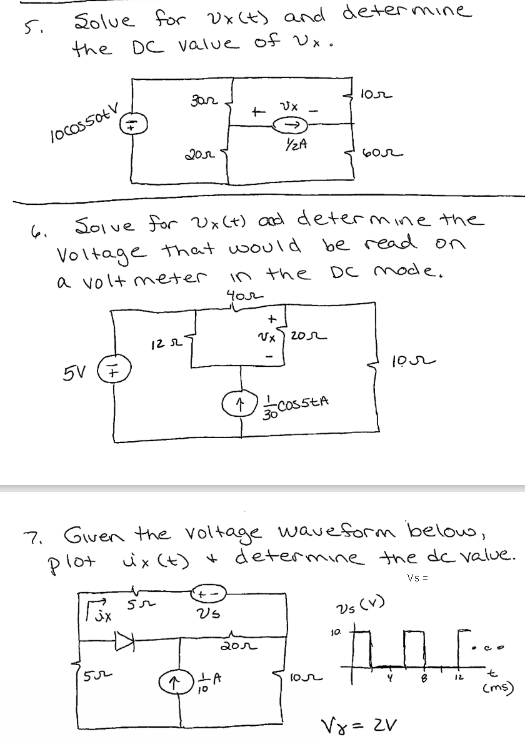 5. Solve for Vx(t) and determine
the DC value of Vx.
10cos50t V
-
+
30Ω
20Ω
+ Vx -
1/2A
10Ω
60Ω
6. Solve for Vx(t) and determine the
Voltage that would be read on
a volt meter in the DC mode.
40Ω
12Ω
+
Vx
-
20Ω
5V
-
+
10Ω
1/30 cos5tA
7. Given the voltage waveform below,
plot ix(t) & determine the dc value.
Vs =
ix
5Ω
+ -
Vs
20Ω
5Ω
1/10 A
10Ω
Vs (V)
10
4 8 12
...
t
(ms)
Vγ = 2V